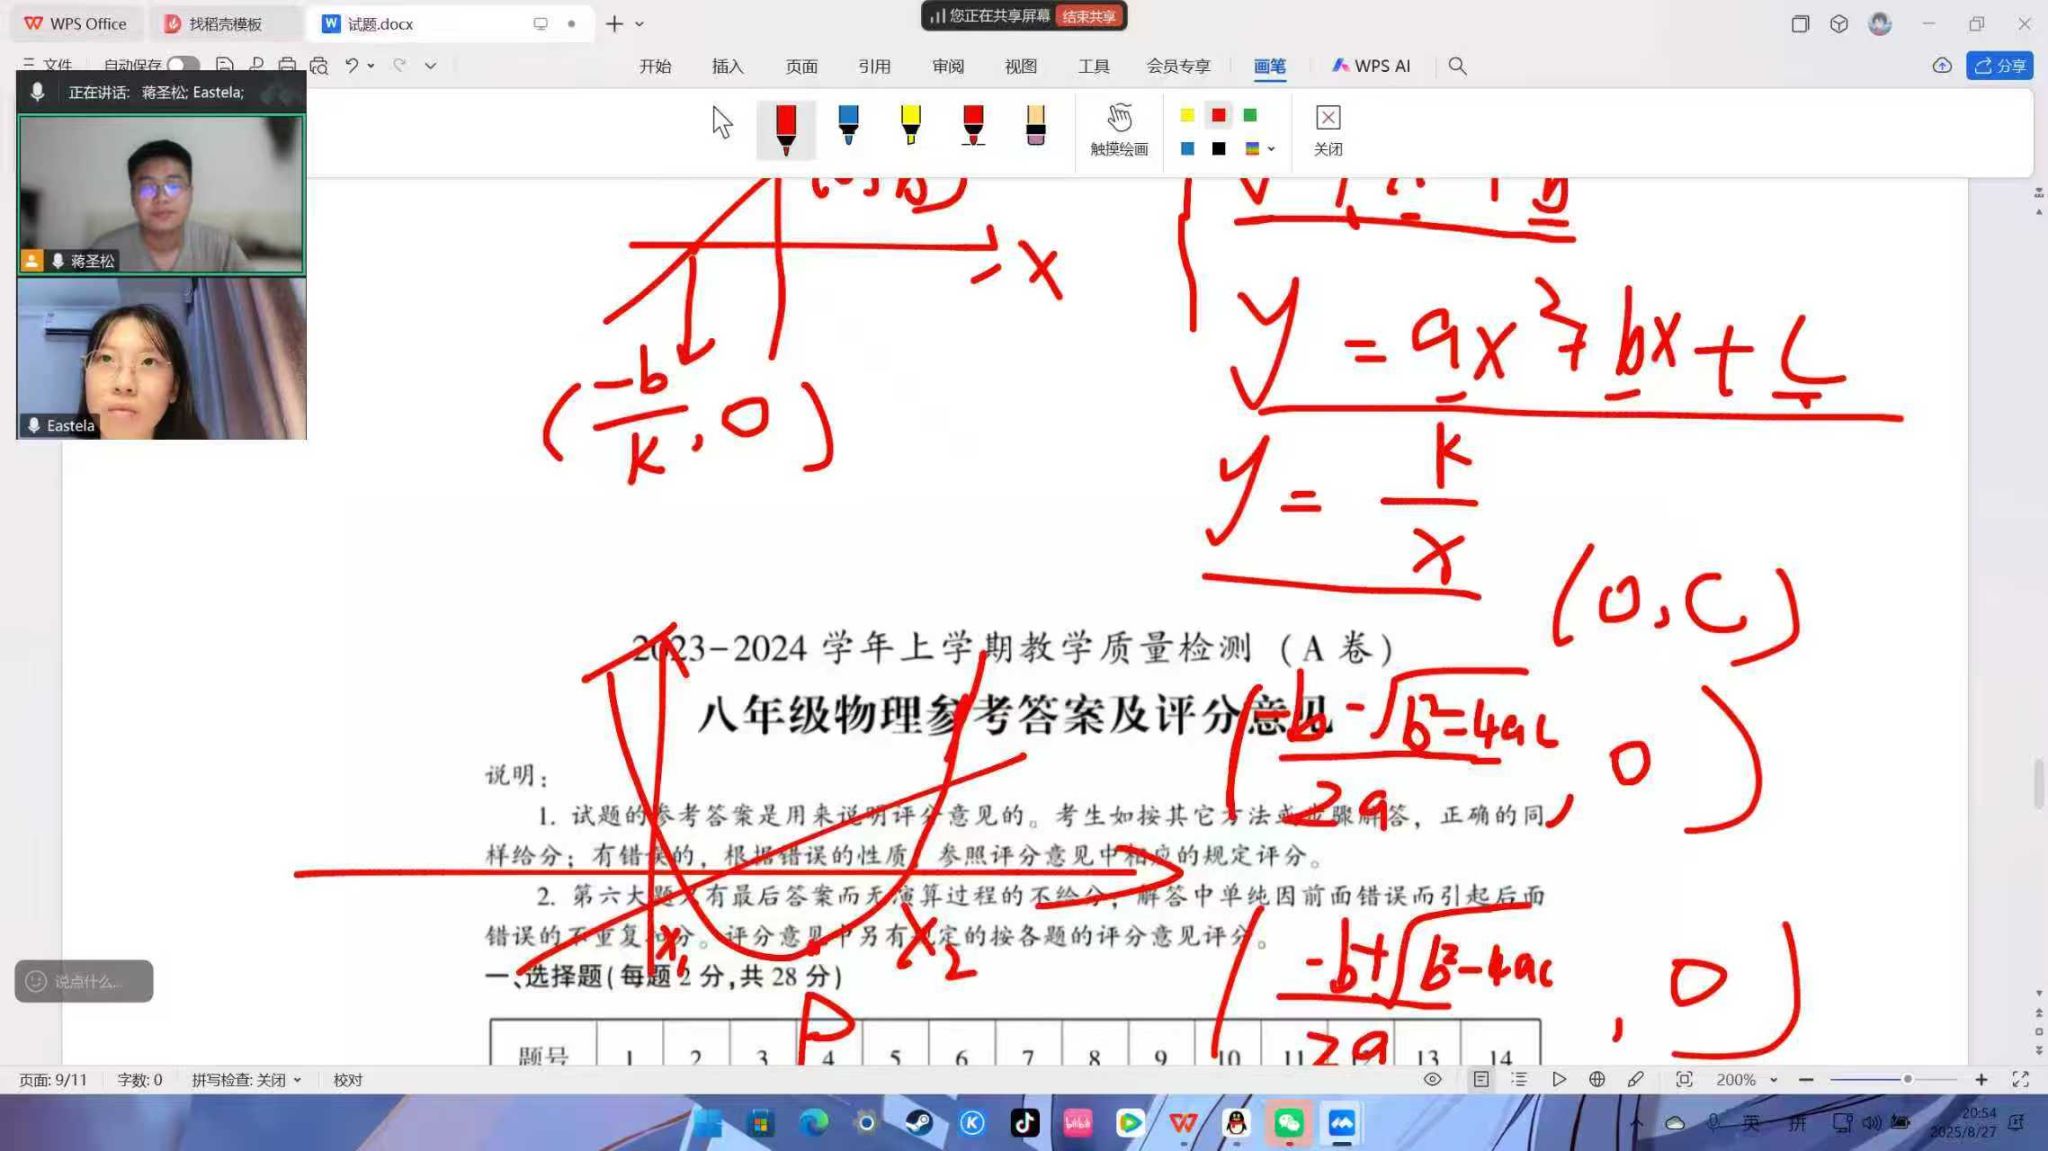 WPS Office
找稻壳模板
试题.docx
您正在共享屏幕 结束共享
文件 自动保存
开始 插入 页面 引用 审阅 视图 工具 会员专享 画笔 WPS AI
分享
正在讲话: 蒋圣松; Eastela;
触摸绘画
关闭
蒋圣松
Eastela
x
(-b/k, 0)
y = ax²+bx+c
y = k/x
(0, c)
2023-2024 学年上学期教学质量检测（A 卷）
八年级物理参考答案及评分意见
(-b-√b²-4ac/2a, 0)
说明：
1. 试题的参考答案是用来说明评分意见的。考生如按其它方法或步骤解答，正确的同
样给分；有错误的，根据错误的性质，参照评分意见中相应的规定评分。
2. 第六大题只有最后答案而无演算过程的不给分；解答中单纯因前面错误而引起后面
错误的不重复扣分。评分意见中另有规定的按各题的评分意见评分。
x₁ x₂
(-b+√b²-4ac/2a, 0)
一、选择题(每题2分,共28分)
P
题号 1 2 3 4 5 6 7 8 9 10 11 12 13 14
说点什么...
页面: 9/11 字数: 0 拼写检查: 关闭 校对
200%
英 拼
20:54
2025/8/27